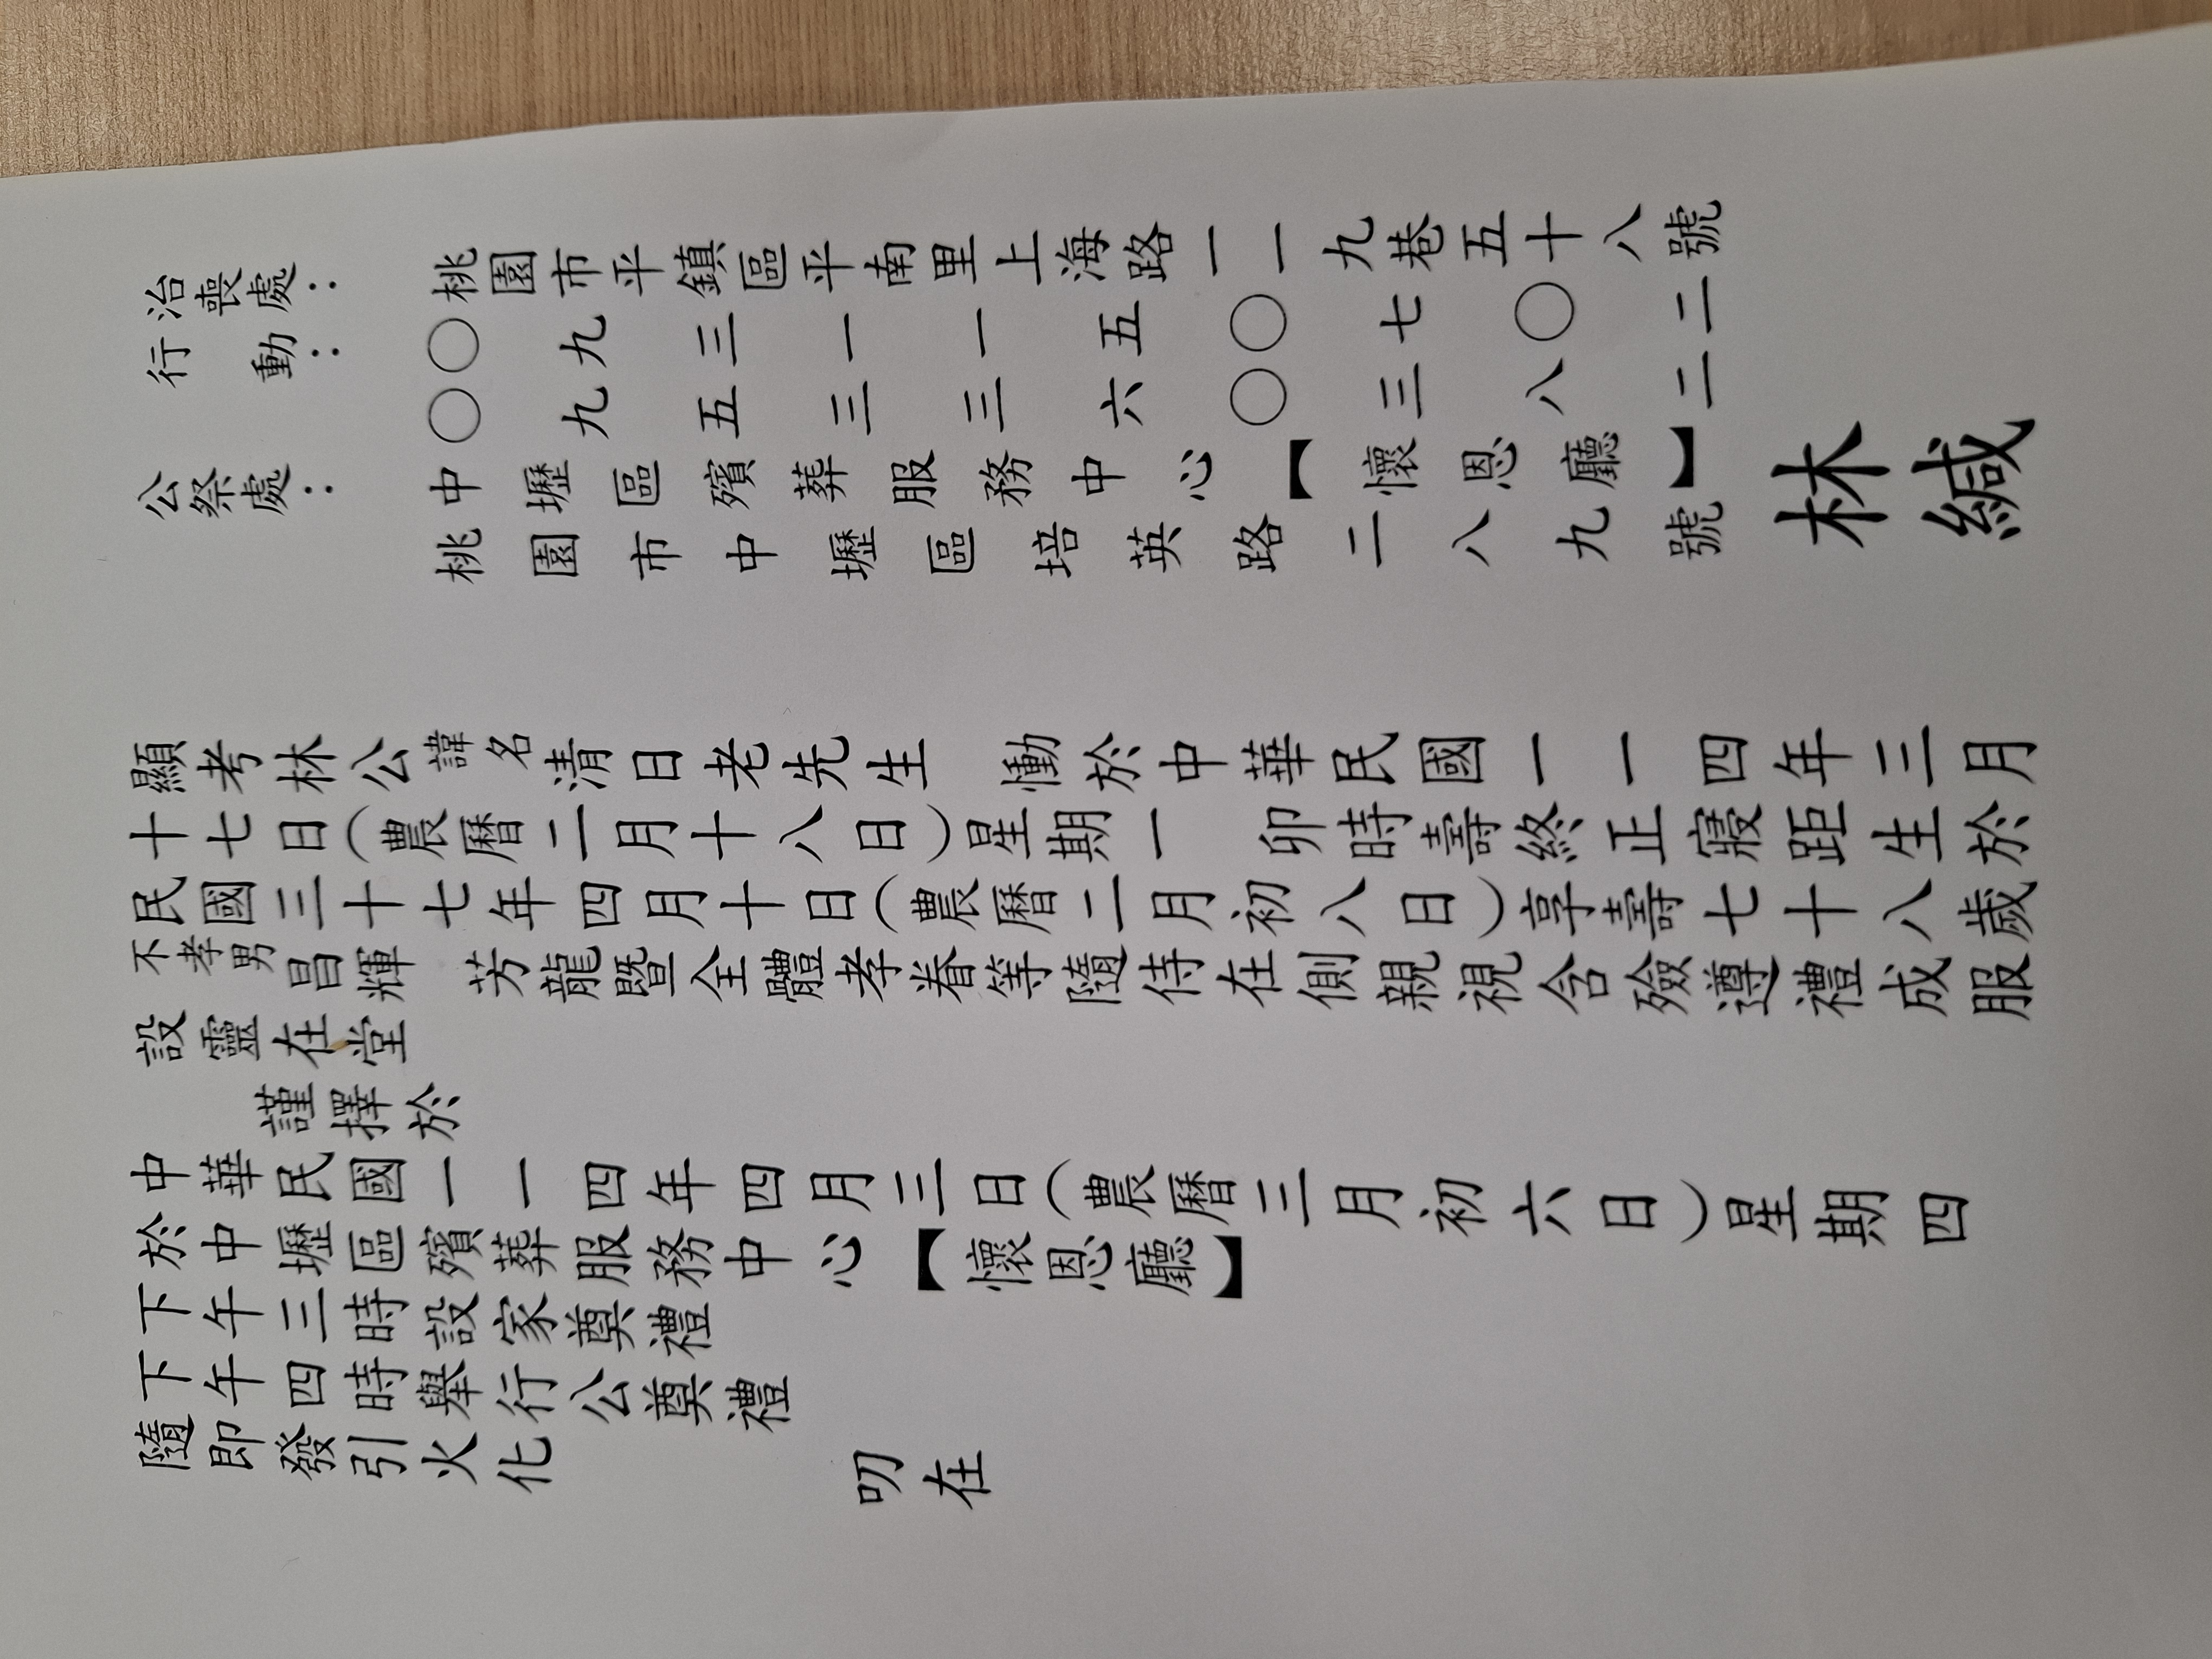 治喪處：桃園市平鎮區平南里上海路一一九巷五十八號
行動：〇九三一一五〇七〇二
〇九五三三六〇三八二
公祭處：中壢區殯葬服務中心【懷恩廳】
桃園市中壢區培英路二八九號
林緘
顯考林公諱名清日老先生 慟於中華民國一一四年三月
十七日(農曆二月十八日)星期一 卯時壽終正寢距生於
民國三十七年四月十日(農曆二月初八日)享壽七十八歲
不孝男昌輝 芳龍暨全體孝眷等隨侍在側親視含殮遵禮成服
設靈在堂
謹擇於
中華民國一一四年四月三日(農曆三月初六日)星期四
於中壢區殯葬服務中心【懷恩廳】
下午三時設家奠禮
下午四時舉行公奠禮
隨即發引火化
叨在